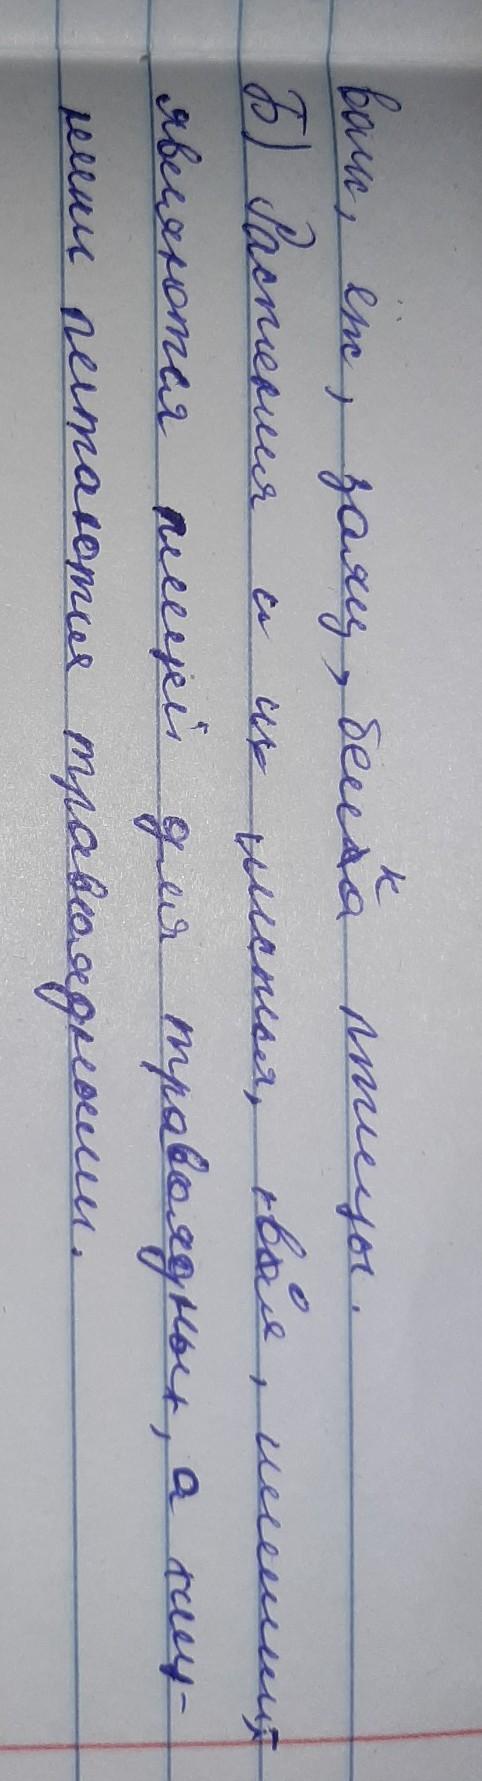 волк, ёж, заяц, белка птицы.
Б) Растения и их листья, хвоя, шишки
являются пищей для травоядных, а хищ-
ники питаются травоядными.